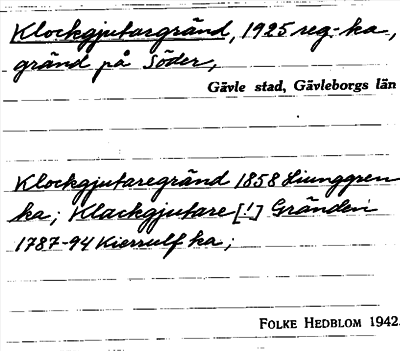 Klockgjutargränd, 1925 reg.-ka,
gränd på Söder,
Gävle stad, Gävleborgs län
Klockgjutaregränd 1858 Ljunggren
ka; Klackgjutare [!] Gränden
1787-94 Kierrulf ka;
FOLKE HEDBLOM 1942.